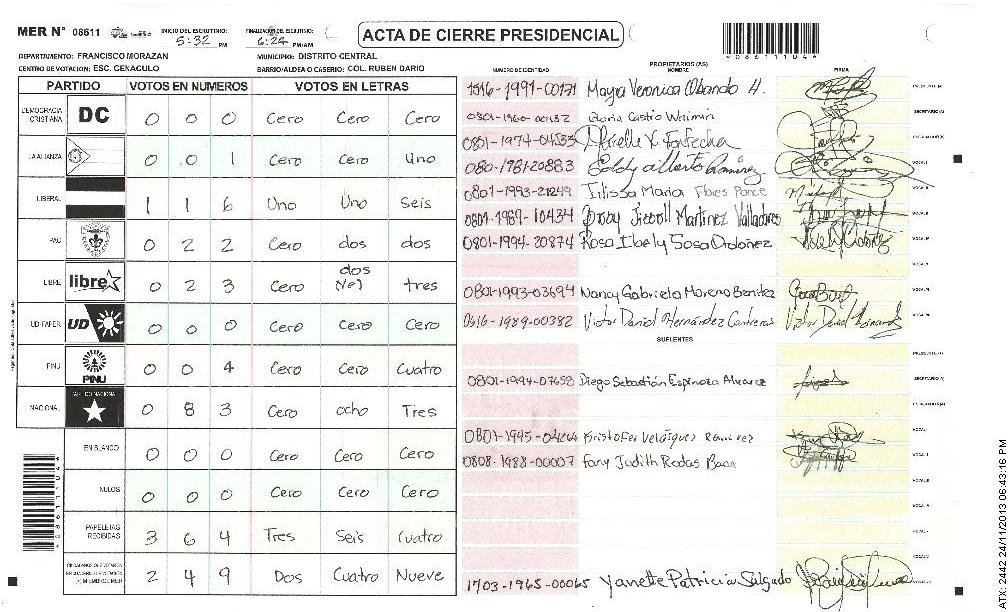 MER N° 08611 INICIO DEL ESCRUTINIO: 5:32 PM FINALIZACIÓN DEL ESCRUTINIO: 6:24 PM/AM ACTA DE CIERRE PRESIDENCIAL
DEPARTAMENTO: FRANCISCO MORAZAN MUNICIPIO: DISTRITO CENTRAL
CENTRO DE VOTACION: ESC. CENACULO BARRIO/ALDEA O CASERIO: COL. RUBEN DARIO
PARTIDO VOTOS EN NUMEROS VOTOS EN LETRAS
DEMOCRACIA CRISTIANA DC 0 0 0 Cero Cero Cero
LA ALIANZA 0 0 1 Cero Cero Uno
LIBERAL 1 1 6 Uno Uno Seis
PAC 0 2 2 Cero dos dos
LIBRE libre 0 2 3 Cero dos tres
UD-FAPER UD 0 0 0 Cero Cero Cero
PINU PINU 0 0 4 Cero Cero Cuatro
NACIONAL PARTIDO NACIONAL 0 8 3 Cero ocho Tres
EN BLANCO 0 0 0 Cero Cero Cero
NULOS 0 0 0 Cero Cero Cero
PAPELETAS RECIBIDAS 3 6 4 Tres Seis Cuatro
2 4 9 Dos Cuatro Nueve
NUMERO DE IDENTIDAD PROPIETARIOS (AS) NOMBRE FIRMA
Mayra Veronica Obando H. PRESIDENTE (A)
Gloria Castro SECRETARIO (A)
0801-1974-04533
VOCAL I
0801-1993-21249 Maria Flores Ponce VOCAL II
Martinez Valladares VOCAL III
0801-1994-20874 Rosa Ibely Sosa Ordoñez VOCAL IV
VOCAL V
0801-1993-03694 Nancy Gabriela Moreno Benitez VOCAL VI
0616-1989-00382 Victor Daniel Hernández Contreras
SUPLENTES
PRESIDENTE (A)
0801-1994-07658 Diego Sebastián Espinoza Alvarez SECRETARIO (A)
ESCRUTADOR (A)
Kristofer Velásquez Ramirez VOCAL I
0808-1988-00007 Fany Judith Rodas
1703-1965-00065 Yanette Patricia Salgado
ATX: 2442 24/11/2013 06:43:16 PM